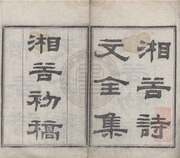 湘芸詩
文全集
湘芸初稿